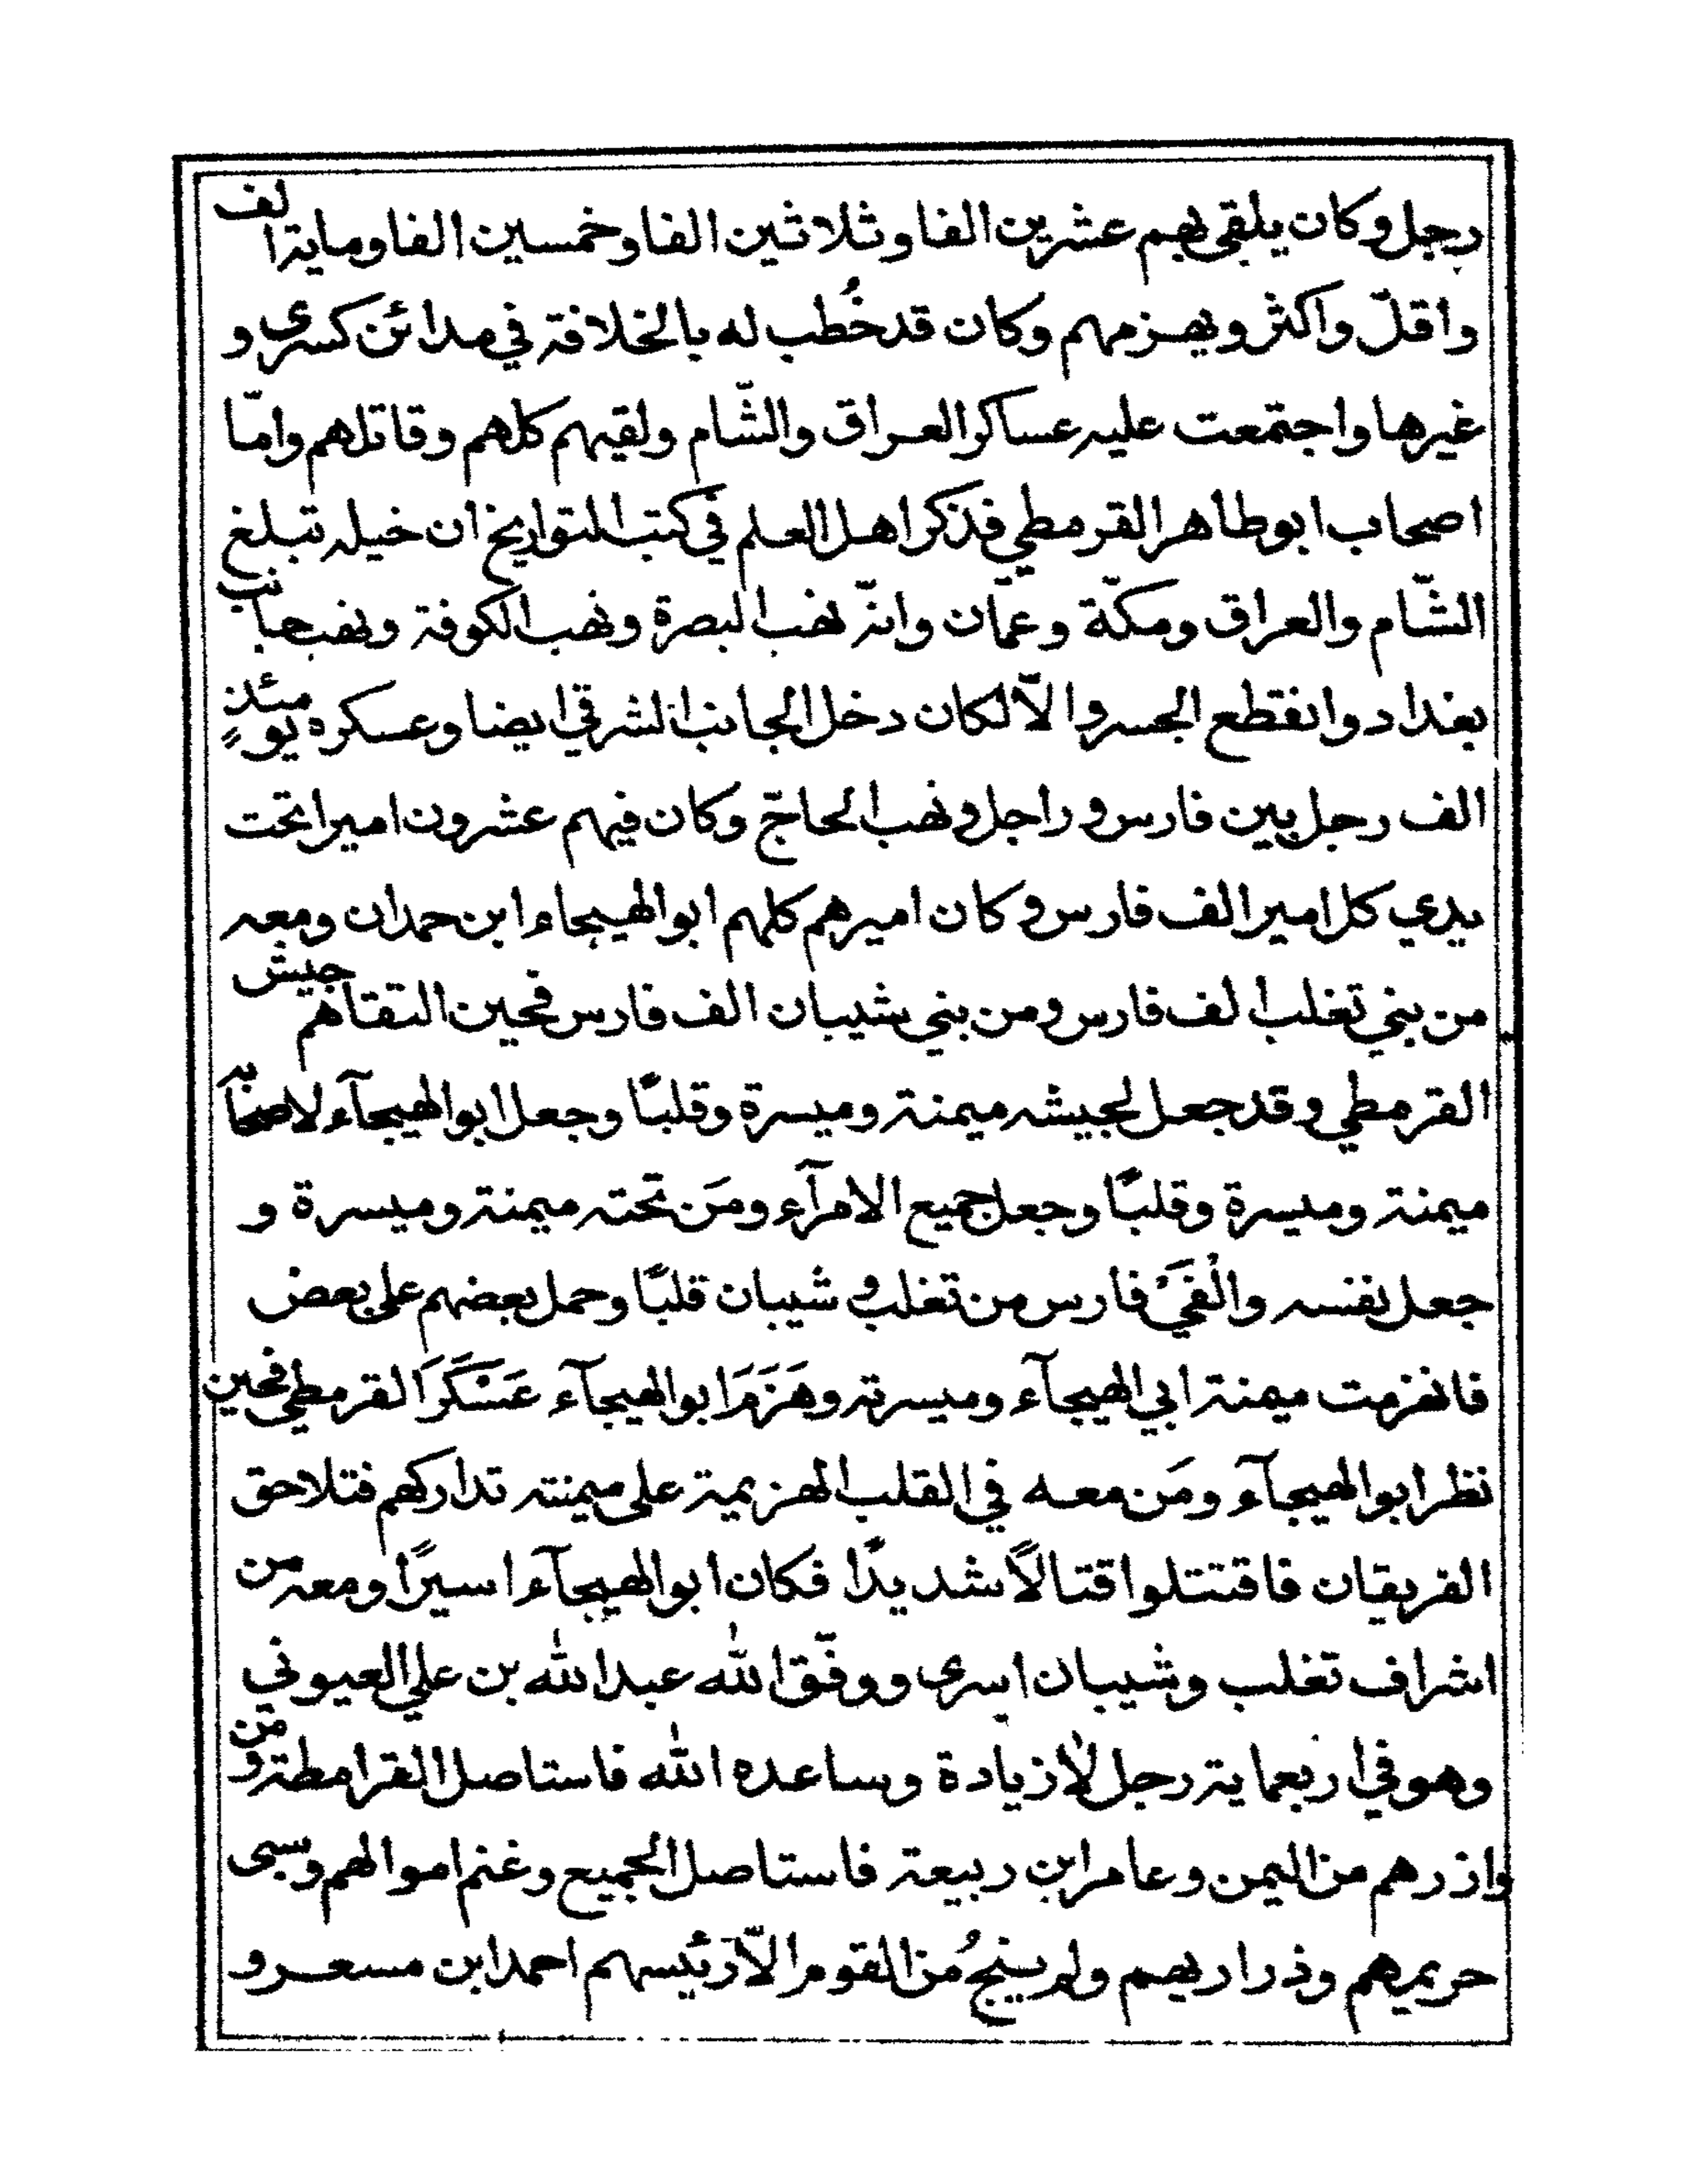 رجل وكان يلقى بهم عشرين الفا وثلاثين الفا وخمسين الفا وماية الف
واقلّ واكثر ويهزمهم وكان قد خُطب له بالخلافة في مدائن كسرى و
غيرها واجتمعت عليه عساكر العراق والشّام ولقيهم كلهم وقاتلهم وامّا
اصحاب ابوطاهر القرمطي فذكر اهل العلم في كتب التواريخ ان خيله تبلغ
الشّام والعراق ومكّة وعمّان وانّه نهب البصرة ونهب الكوفة ونهب جانب
بغداد وانقطع الجسر والّا لكان دخل الجانب الشرقي ايضا وعسكره يومئذٍ
الف رجل بين فارس وراجل ونهب الحاجّ وكان فيهم عشرون اميرا تحت
يدي كل امير الف فارس وكان اميرهم كلهم ابو الهيجاء ابن حمدان ومعه
من بني تغلب الف فارس ومن بني شيبان الف فارس فحين التقاهم جيش
القرمطي وقد جعل لجيشه ميمنة وميسرة وقلبًا وجعل ابو الهيجآء لاصحابه
ميمنة وميسرة وقلبًا وجعل جميع الامرآء ومَن تحته ميمنة وميسرة و
جعل نفسه والْفَيْ فارس من تغلب وشيبان قلبًا وحمل بعضهم على بعض
فانهزمت ميمنة ابي الهيجآء وميسرته وهَزَمَ ابو الهيجآء عَسْكَرَ القرمطي فحين
نظر ابو الهيجآء ومَن معه في القلب الهزيمة على ميمنته تداركهم فتلاحق
الفريقان فاقتتلوا قتالًا شديدًا فكان ابو الهيجآء اسيرًا ومعه من
اشراف تغلب وشيبان اسرى ووفّق الله عبدالله بن علي العيوني
وهو في اربعماية رجل لا زيادة وساعده الله فاستاصل القرامطة ومن
وازرهم من اليمن وعامر ابن ربيعة فاستاصل الجميع وغنم اموالهم وسبى
حريمهم وذراريهم ولم ينجُ من القوم الّا رئيسهم احمد ابن مسعر و